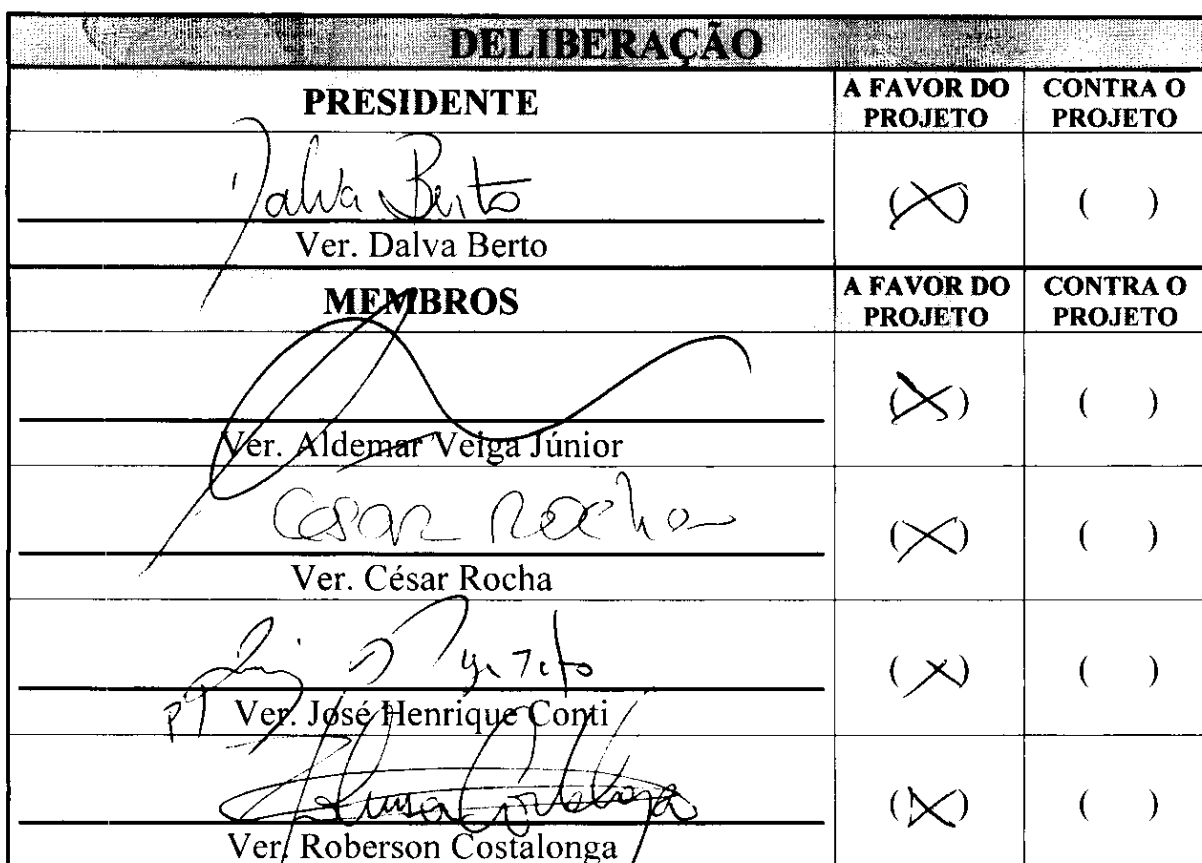 DELIBERAÇÃO
PRESIDENTE A FAVOR DO PROJETO CONTRA O PROJETO
Dalva Berto (X) ( )
Ver. Dalva Berto
MEMBROS A FAVOR DO PROJETO CONTRA O PROJETO
(X) ( )
Ver. Aldemar Veiga Júnior
Cesar Rocha (X) ( )
Ver. César Rocha
(X) ( )
Ver. José Henrique Conti
Costalonga (X) ( )
Ver. Roberson Costalonga